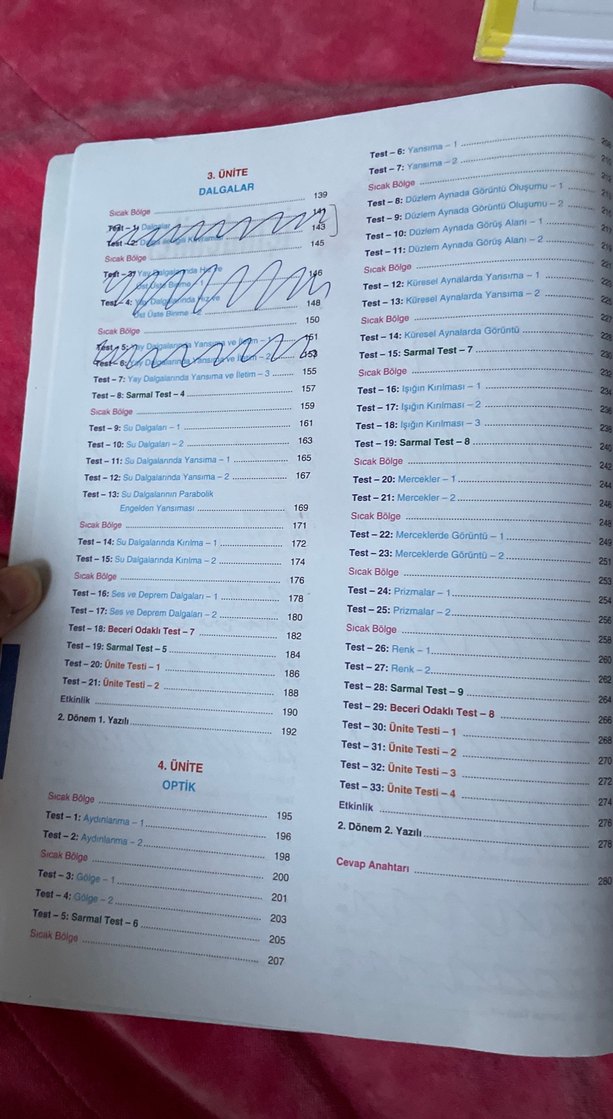 3. ÜNİTE
DALGALAR
Sıcak Bölge 139
Test – 1: Dalgalar 141
Test – 2: 143
Sıcak Bölge 145
Test – 3: Yay Dalgalarında Hız ve
Üst Üste Binme – 1 146
Test – 4: Yay Dalgalarında Hız ve
Üst Üste Binme – 148
Sıcak Bölge 150
Test – 5: Yay Dalgalarında Yansıma ve İletim – 1 151
Test – 6: Yay Dalgalarında Yansıma ve İletim – 2 153
Test – 7: Yay Dalgalarında Yansıma ve İletim – 3 155
Test – 8: Sarmal Test – 4 157
Sıcak Bölge 159
Test – 9: Su Dalgaları – 1 161
Test – 10: Su Dalgaları – 2 163
Test – 11: Su Dalgalarında Yansıma – 1 165
Test – 12: Su Dalgalarında Yansıma – 2 167
Test – 13: Su Dalgalarının Parabolik
Engelden Yansıması 169
Sıcak Bölge 171
Test – 14: Su Dalgalarında Kırılma – 1 172
Test – 15: Su Dalgalarında Kırılma – 2 174
Sıcak Bölge 176
Test – 16: Ses ve Deprem Dalgaları – 1 178
Test – 17: Ses ve Deprem Dalgaları – 2 180
Test – 18: Beceri Odaklı Test – 7 182
Test – 19: Sarmal Test – 5 184
Test – 20: Ünite Testi – 1 186
Test – 21: Ünite Testi – 2 188
Etkinlik 190
2. Dönem 1. Yazılı 192
4. ÜNİTE
OPTİK
Sıcak Bölge 195
Test – 1: Aydınlanma – 1 196
Test – 2: Aydınlanma – 2 198
Sıcak Bölge 200
Test – 3: Gölge – 1 201
Test – 4: Gölge – 2 203
Test – 5: Sarmal Test – 6 205
Sıcak Bölge 207
Test – 6: Yansıma – 1
Test – 7: Yansıma – 2
Sıcak Bölge
Test – 8: Düzlem Aynada Görüntü Oluşumu – 1
Test – 9: Düzlem Aynada Görüntü Oluşumu – 2
Test – 10: Düzlem Aynada Görüş Alanı – 1
Test – 11: Düzlem Aynada Görüş Alanı – 2
Sıcak Bölge
Test – 12: Küresel Aynalarda Yansıma – 1
Test – 13: Küresel Aynalarda Yansıma – 2
Sıcak Bölge
Test – 14: Küresel Aynalarda Görüntü
Test – 15: Sarmal Test – 7
Sıcak Bölge
Test – 16: Işığın Kırılması – 1
Test – 17: Işığın Kırılması – 2
Test – 18: Işığın Kırılması – 3
Test – 19: Sarmal Test – 8
Sıcak Bölge
Test – 20: Mercekler – 1 244
Test – 21: Mercekler – 2 246
Sıcak Bölge 248
Test – 22: Merceklerde Görüntü – 1 249
Test – 23: Merceklerde Görüntü – 2 251
Sıcak Bölge 253
Test – 24: Prizmalar – 1 254
Test – 25: Prizmalar – 2 256
Sıcak Bölge
Test – 26: Renk – 1 260
Test – 27: Renk – 2 262
Test – 28: Sarmal Test – 9 264
Test – 29: Beceri Odaklı Test – 8 266
Test – 30: Ünite Testi – 1 268
Test – 31: Ünite Testi – 2 270
Test – 32: Ünite Testi – 3 272
Test – 33: Ünite Testi – 4 274
Etkinlik 276
2. Dönem 2. Yazılı 278
Cevap Anahtarı 280